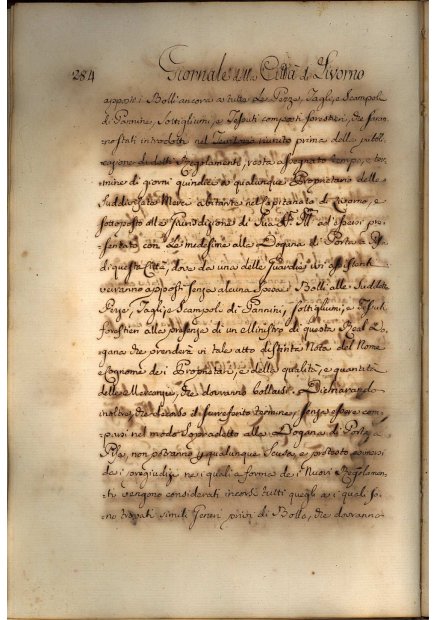 284 Giornale della Città di Livorno
apposti i Bolli ancora a tutte Le Pezze, Tagli, e Scampoli
di Pannine, Sottigliumi, e Tessuti composti forestieri, che saran
no stati introdotti nel Territorio riunito prima della pubbli
cazione di detti Regolamenti, resta assegnato tempo, e ter
mine di giorni quindici a qualunque Proprietario delle
suddivisate Merci abitante nel Capitanato di Livorno, e
sottoposto alla Giurisdizione di Sua
sentato con Le medesime alla Dogana di Porta a Pisa
di questa Città, dove da una delle Guardie ivi assistenti
verranno apposti senza alcuna spesa i Bolli alle suddette
Pezze, Tagli, e Scampoli di Pannine, sottigliumi, e Tessuti
forestieri alla presenza di un Ministro di questa Real Do
gana che prenderà in tale atto distinta Nota del Nome
e Cognome dei Proprietari, e della qualità, e quantità
delle Mercanzie, che dovranno bollarsi. Dichiarando
inoltre, che decorso il surriferito termine, senza essere com
parsi nel modo Sopradetto alla Dogana di Porta a
Pisa, non potranno p qualunque Scusa, e pretesto esimersi
dai pregiudizi nei quali a forma dei Nuovi Regolamen
ti vengono considerati incorsi tutti quegli a i quali sa
no trovati simili Generi privi di Bollo, che dovranno